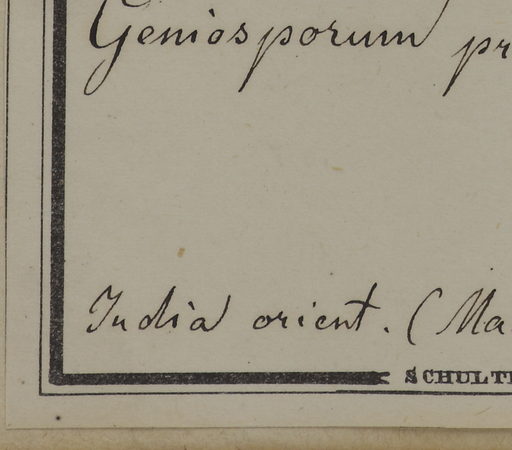 Geniosporum pr
India orient. (Ma
SCHULT